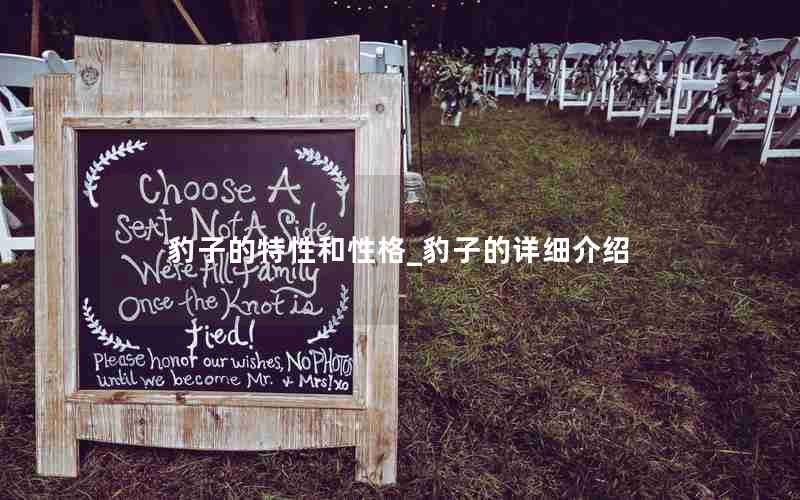 Choose A
Seat, Not A Side
We're All Family
Once the Knot is
tied!
Please honor our wishes, NO PHOTOS
until we become Mr. & Mrs! xo
豹子的特性和性格_豹子的详细介绍